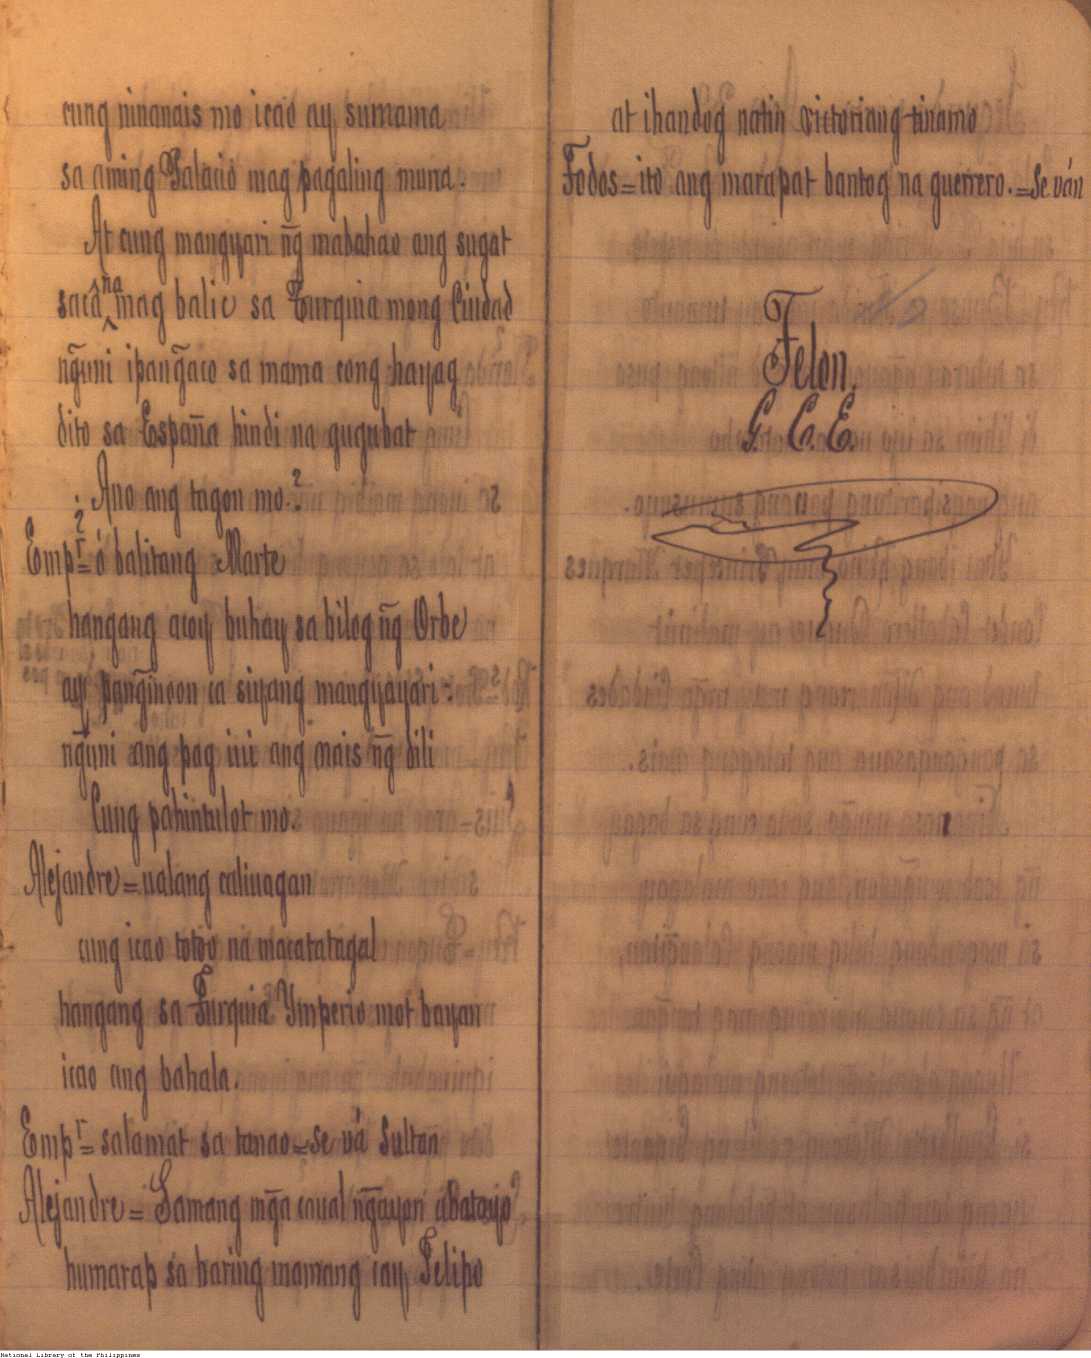 cung ninanais mo icao ay sumama
sa aming Palacio mag pagaling muna.
At cung mangyari ñg mabahao ang sugat
sacâ na mag balic sa Turquia mong Ciudad
ñguni ipañgaco sa mama cong hayag
dito sa España hindi na gugubat
¿Ano ang tugon mo.?
Empr= ó balitang Marte
hangang acoy buhay sa bilog ñg Orbe
ay pañginoon ca siyang mangyayari.
ñguni ang pag iric ang nais ñg bili
Cung pahintulot mo.
Alejandre= ualang caliuagan
cung icao totoo na macatatagal
hangang sa Turquia Ymperio mot bayan
icao ang bahala.
Empr= salamat sa tanao=se vá Sultan
Alejandre= Samang mḡa caual ñgayon
humarap sa haring mamang cay Felipo
at ihandog natin victoriang tinamo
Todos=ito ang marapat bantog na guerrero.=Se ván
Telon.
G. C. E.
National Library of the Philippines